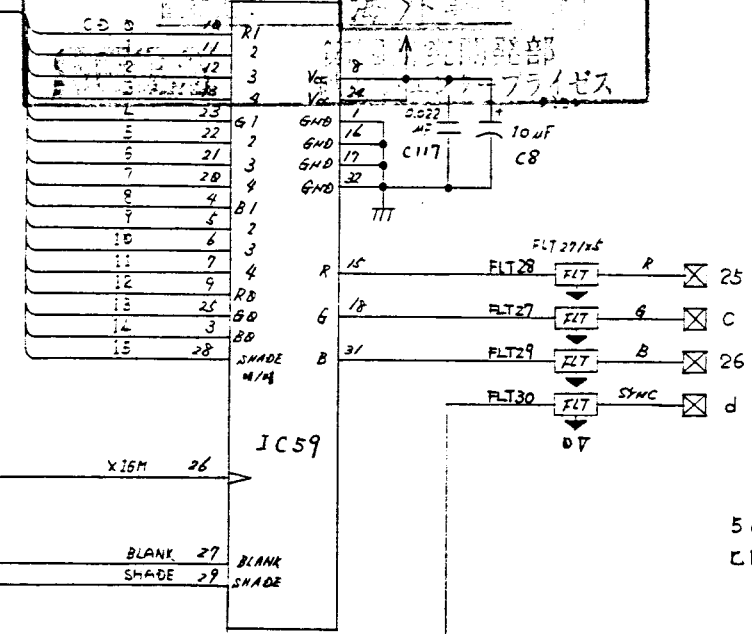 CD 0 10 R1
1 11 2
2 12 3
3 13 4
4 23 G1
5 22 2
6 21 3
7 20 4
8 4 B1
9 5 2
10 6 3
11 7 4
12 9 R0
13 25 G0
14 3 B0
15 28 SHADE
Vcc 8
Vcc 24
GND 1
GND 16
GND 17
GND 32
開発部
プライゼス
0.022
μF
C117
+
10μF
C8
FLT27/x5
R 15 FLT28 FLT R 25
G 18 FLT27 FLT G C
B 31 FLT29 FLT B 26
FLT30 FLT SYNC d
0V
IC59
X16M 26
BLANK 27 BLANK
SHADE 29 SHADE
5